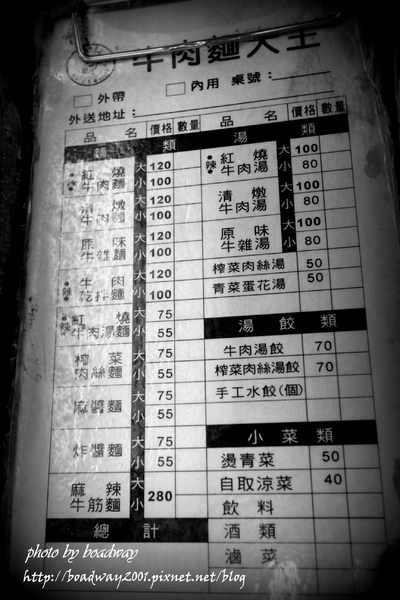 牛肉麵大王
外帶 內用 桌號:
外送地址:
品名 價格 數量 品名 價格 數量
麵類
辣 紅燒牛肉麵 大 120
小 100
清燉牛肉麵 大 120
小 100
原味牛雜麵 大 120
小 100
辣 牛肉乾拌麵 大 120
小 100
辣 紅燒牛肉湯麵 大 75
小 55
榨菜肉絲麵 大 75
小 55
麻醬麵 大 75
小 55
炸醬麵 大 75
小 55
麻辣牛筋麵 大 280
小
總計
湯類
辣 紅燒牛肉湯 大 100
小 80
清燉牛肉湯 大 100
小 80
原味牛雜湯 大 100
小 80
榨菜肉絲湯 50
青菜蛋花湯 50
湯餃類
牛肉湯餃 70
榨菜肉絲湯餃 70
手工水餃(個)
小菜類
燙青菜 50
自取涼菜 40
飲料
酒類
滷菜
photo by boadway
http://boadway2001.pixnet.net/blog